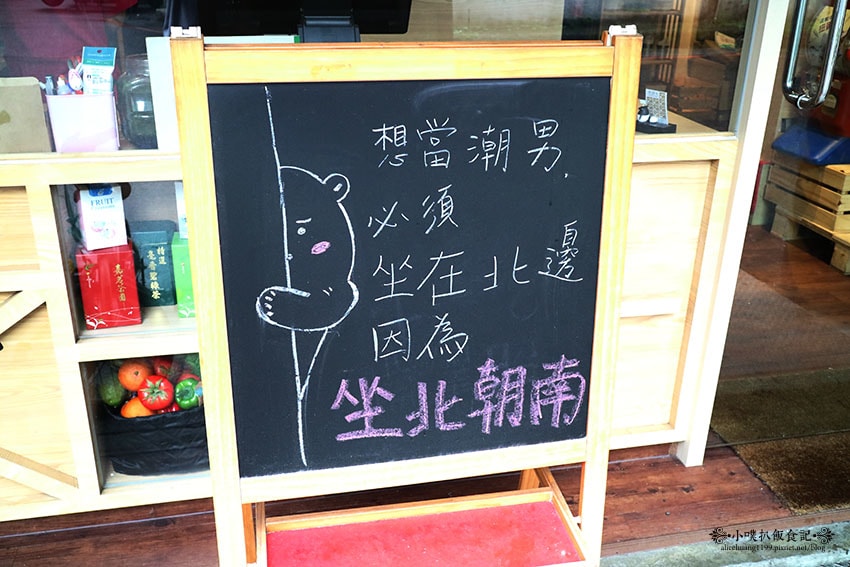 想當潮男,
必須
坐在北邊
因為
坐北朝南
FRUIT
小噗扒飯食記
alicehuang1199.pixnet.net/blog